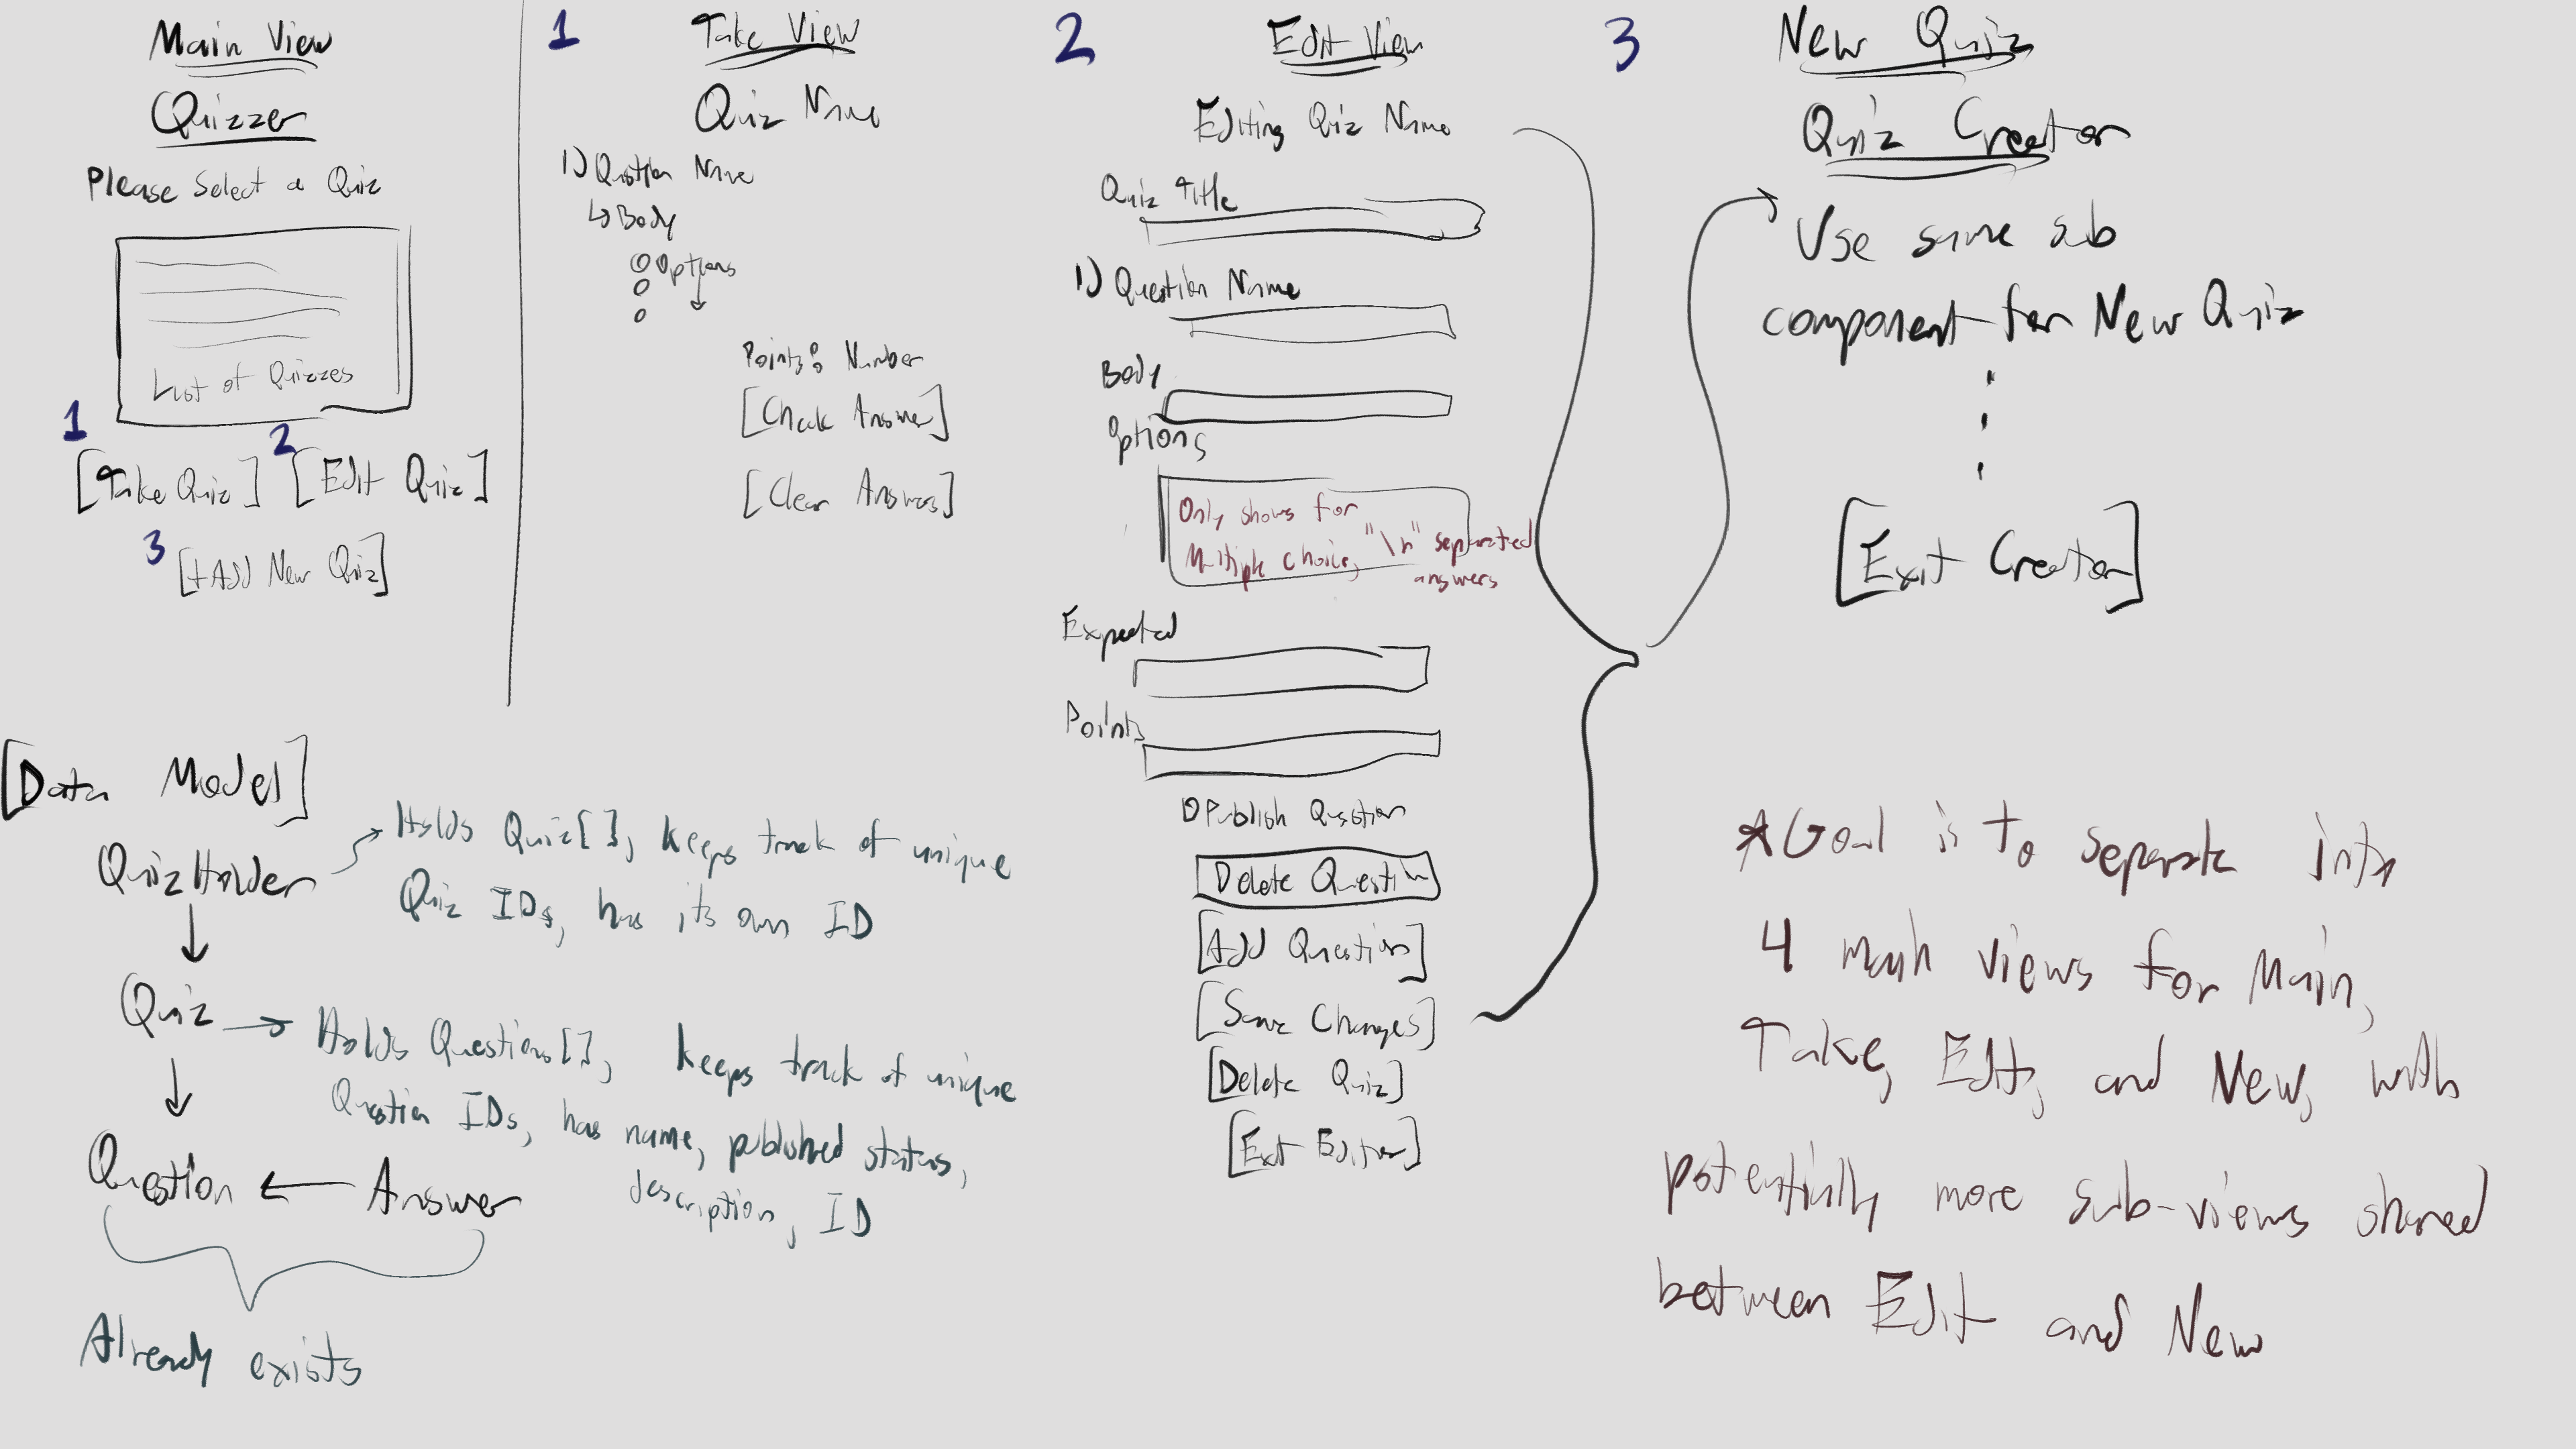 Main View
Quizzer
Please Select a Quiz
List of Quizzes
1
[Take Quiz]
2
[Edit Quiz]
3
[+Add New Quiz]
1
Take View
Quiz Name
1) Question Name
↳ Body
Options
Points: Number
[Check Answer]
[Clear Answers]
2
Edit View
Editing Quiz Name
Quiz Title
1) Question Name
Body
Options
Only shows for
Multiple choice, "\n" separated
answers
Expected
Points
Publish Question
Delete Question
[Add Question]
[Save Changes]
[Delete Quiz]
[Exit Editor]
3
New Quiz
Quiz Creator
Use same sub
component for New Quiz
[Exit Creator]
[Data Model]
QuizHolder
Holds Quiz[], keeps track of unique
Quiz IDs, has its own ID
Quiz
Holds Questions[], keeps track of unique
Question IDs, has name, published status,
description, ID
Question ← Answer
Already exists
*Goal is to separate into
4 main views for Main,
Take, Edit, and New, with
potentially more sub-views shared
between Edit and New